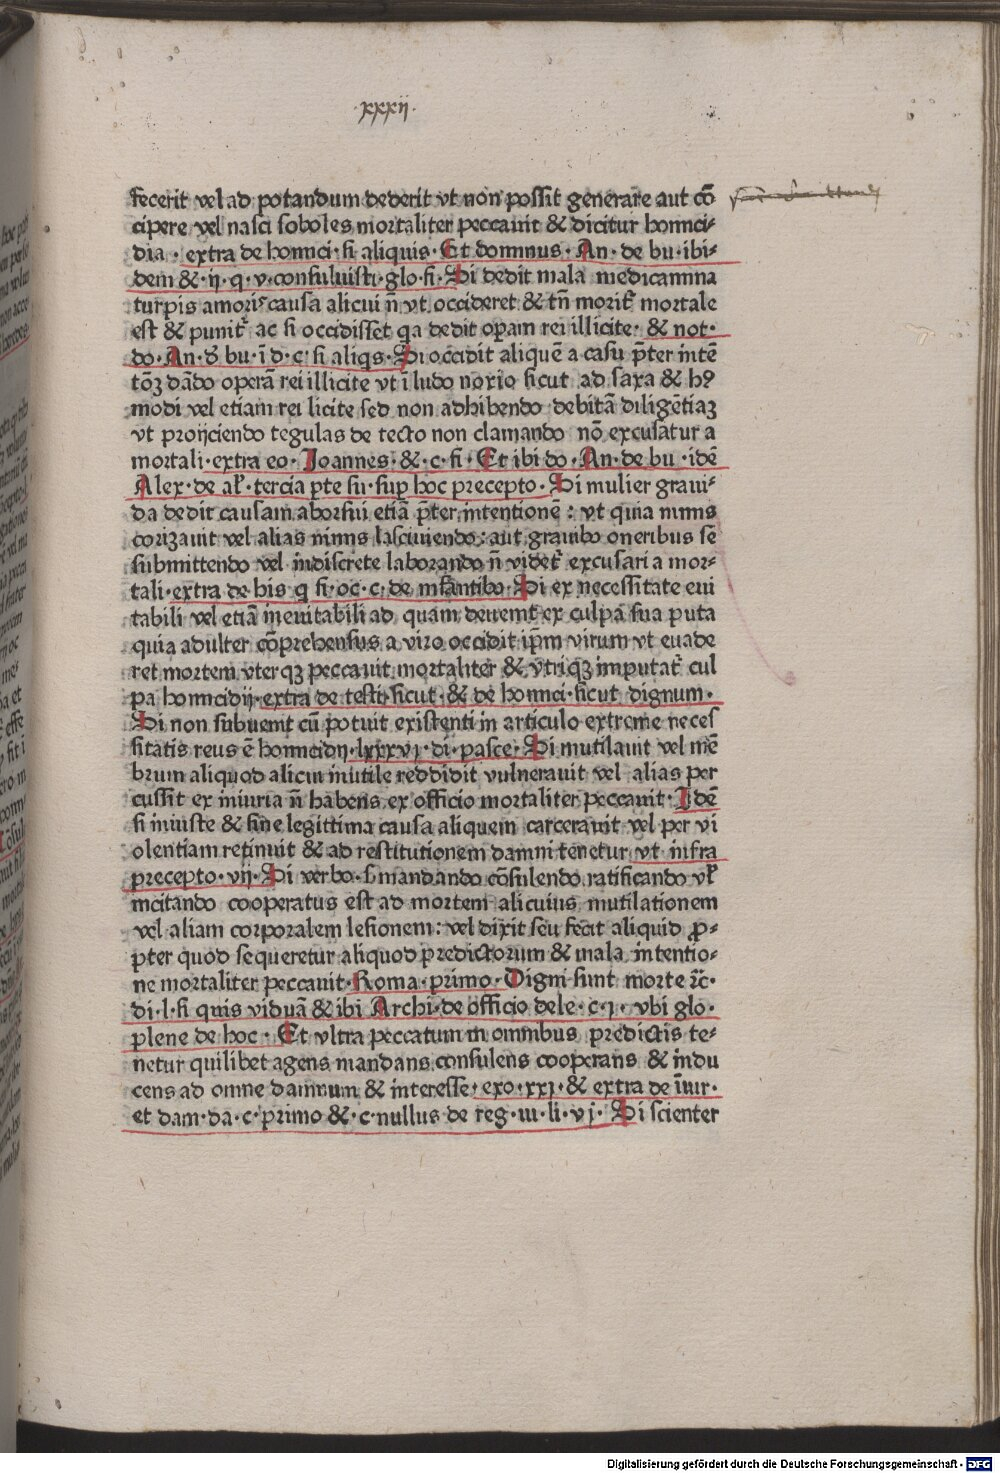 ·xxxij·
fecerit vel ad potandum dederit vt non possit generare aut cō
cipere vel nasci soboles mortaliter peccauit & dicitur homici-
dia · extra de homici· si aliquis· Et dominus· An· de bu· ibi-
dem & ·ij· q· v· consuluisti· glo· fi· Si dedit mala medicamina
turpis amoris causa alicui n̄ vt occideret & tn̄ morit᷑ mortale
est & punit᷑ ac si occidisset q̣a dedit op̱am rei illicite· & not·
do· An· d̄ bu· ī d· c· si aliq̣s· Si occidit aliquē a casu p̄ter intē
tōꝫ dādo operā rei illicite vt ī ludo noxio sicut ad saxa & hꝰ
modi vel etiam rei licite sed non adhibendo debitā diligētiaꝫ
vt proijciendo tegulas de tecto non clamando nō excusatur a
mortali· extra eo· Joannes· & ·c· fi· Et ibi do· An· de bu· idē
Alex· de al̵· tercia p̱te su· sup̱ hoc precepto· Si mulier graui-
da dedit causam aborsui etiā p̄ter intentionē: vt quia nimis
corizauit vel alias nimis lasciuiendo: aut grauibꝰ oneribus se
submittendo vel indiscrete laborando n̄ videt᷑ excusari a mor-
tali· extra de his q̣ fi· oc· c· de infantibꝰ· Si ex necessitate eui
tabili vel etiā ineuitabili ad quam deuenit ex culpa sua puta
quia adulter cōprehensus a viro occidit ip̄m virum vt euade
ret mortem vterqꝫ peccauit mortaliter & vtriqꝫ imputat᷑ cul
pa homicidij· extra de testi· sicut· & de homici· sicut dignum·
Si non subuenit cū potuit existenti in articulo extreme neces
sitatis reus ē homicidij· lxxxvj· di· pasce· Si mutilauit vel mē
brum aliquod alicui inutile reddidit vulnerauit vel alias per
cussit ex iniuria n̄ habens ex officio mortaliter peccauit· Idē
si iniuste & sine legittima causa aliquem carcerauit vel per vi
olentiam retinuit & ad restitutionem damni tenetur vt infra
precepto· vij· Si verbo· s̄ mandando cōsulendo ratificando vl̵
incitando cooperatus est ad mortem alicuius mutilationem
vel aliam corporalem lesionem: vel dixit seu fecit aliquid p̱ro-
pter quod sequeretur aliquod predictorum & mala intentio-
ne mortaliter peccauit· Roma· primo· Digni sunt morte ⁊c̄·
di· l· si quis viduā & ibi Archi· de officio dele· c· j· vbi glo·
plene de hoc· Et vltra peccatum in omnibus predictis te-
netur quilibet agens mandans consulens cooperans & indu
cens ad omne damnum & interesse· exo· xxj· & extra de īiur·
et dam· da· c· primo & ·c· nullus de reg· iu· li· vj· Si scienter
Digitalisierung gefördert durch die Deutsche Forschungsgemeinschaft - DFG